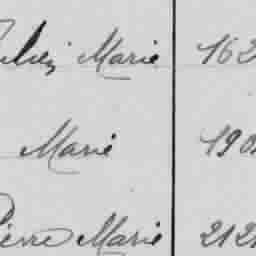 Marie 162
Marie 190
Pierre Marie 212